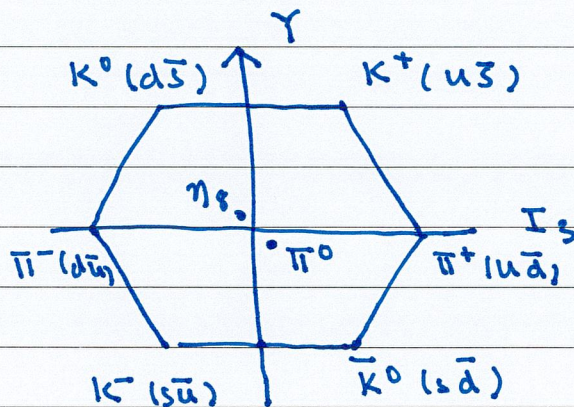 Y
K⁰ (ds̄) K⁺ (us̄)
η₈
I₃
π⁰
π⁻ (dū) π⁺ (ud̄)
K⁻ (sū) K̄⁰ (sd̄)